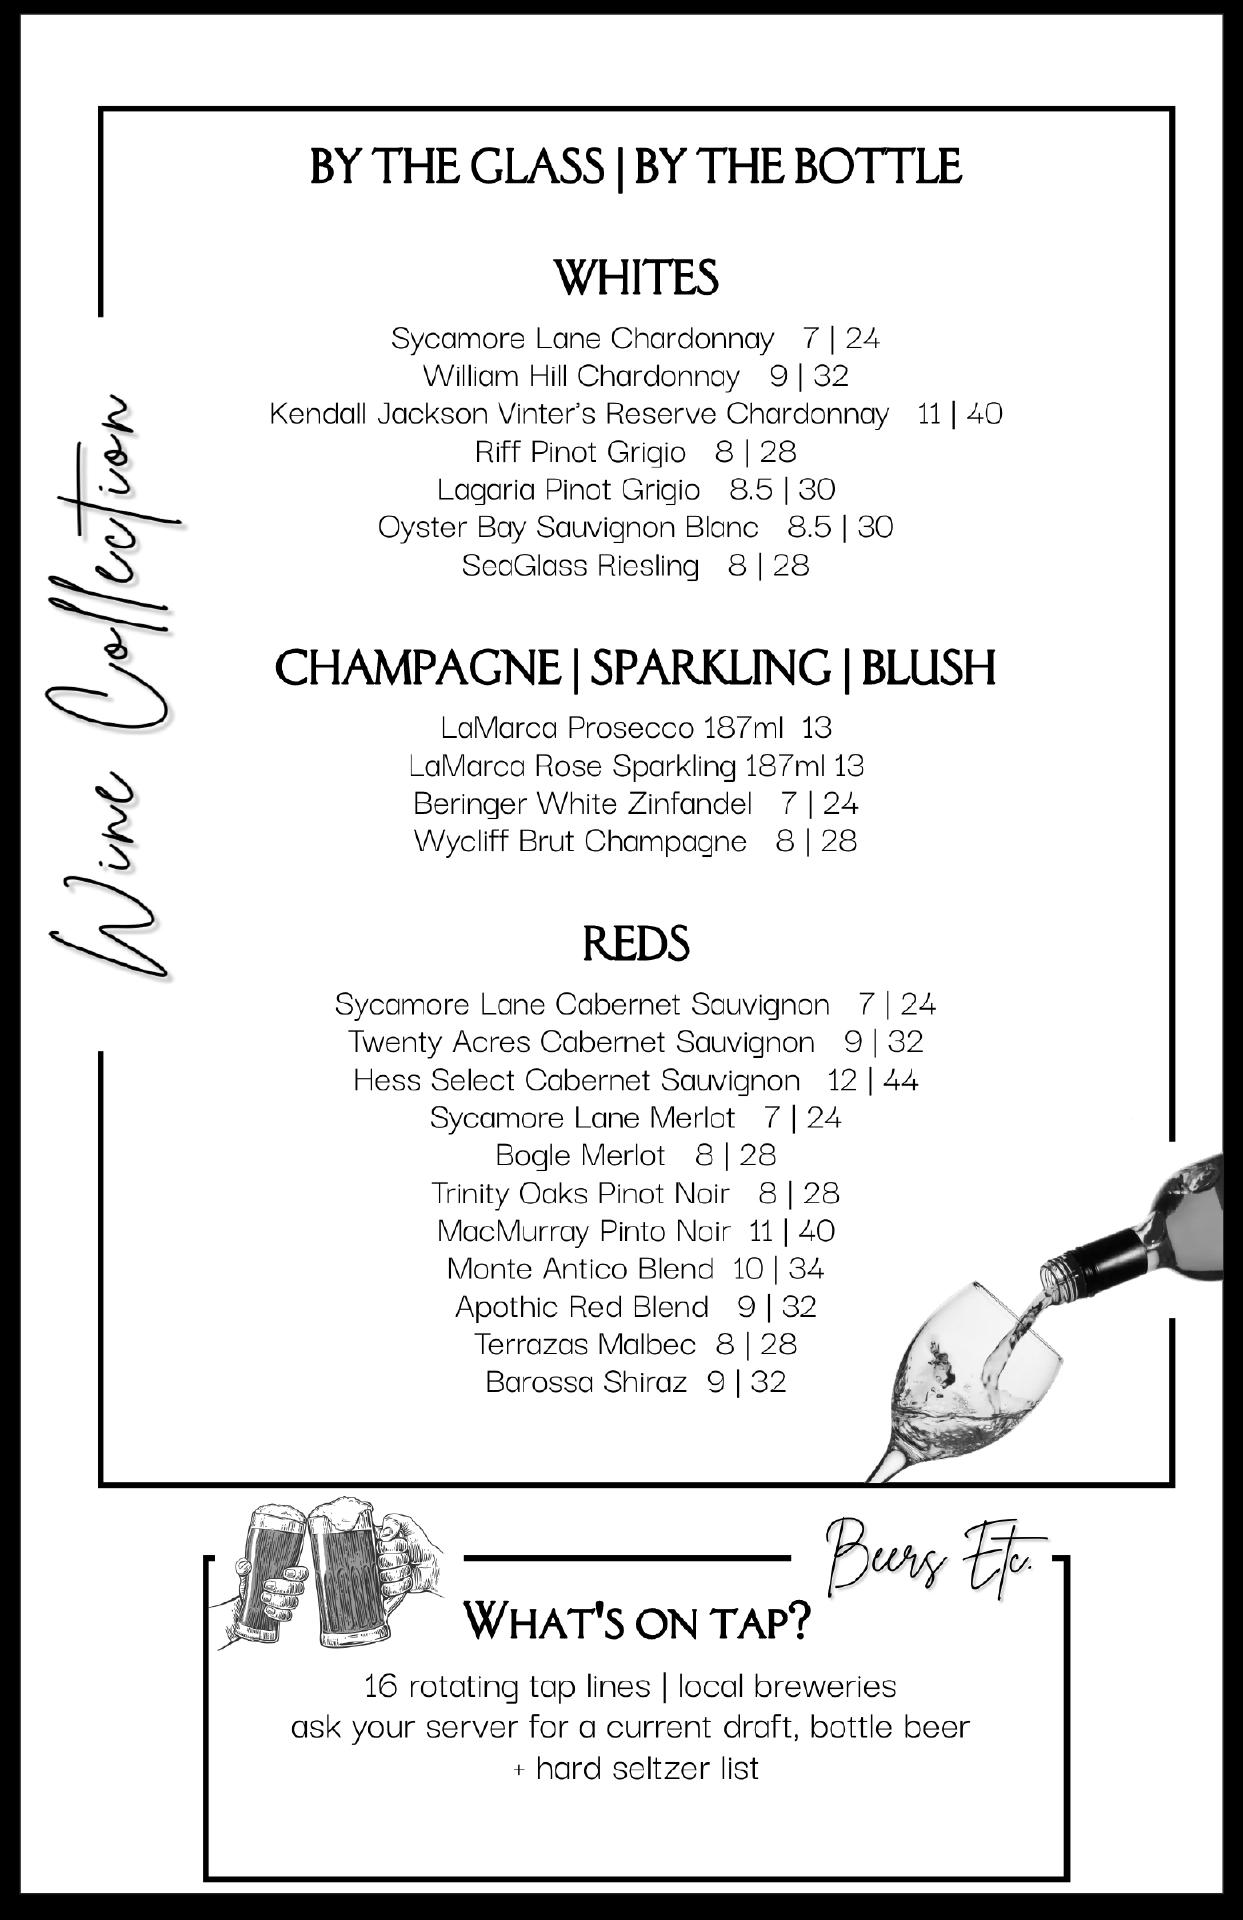 BY THE GLASS | BY THE BOTTLE
WHITES
Sycamore Lane Chardonnay 7 | 24
William Hill Chardonnay 9 | 32
Kendall Jackson Vinter's Reserve Chardonnay 11 | 40
Riff Pinot Grigio 8 | 28
Lagaria Pinot Grigio 8.5 | 30
Oyster Bay Sauvignon Blanc 8.5 | 30
SeaGlass Riesling 8 | 28
Wine Collection
CHAMPAGNE | SPARKLING | BLUSH
LaMarca Prosecco 187ml 13
LaMarca Rose Sparkling 187ml 13
Beringer White Zinfandel 7 | 24
Wycliff Brut Champagne 8 | 28
REDS
Sycamore Lane Cabernet Sauvignon 7 | 24
Twenty Acres Cabernet Sauvignon 9 | 32
Hess Select Cabernet Sauvignon 12 | 44
Sycamore Lane Merlot 7 | 24
Bogle Merlot 8 | 28
Trinity Oaks Pinot Noir 8 | 28
MacMurray Pinto Noir 11 | 40
Monte Antico Blend 10 | 34
Apothic Red Blend 9 | 32
Terrazas Malbec 8 | 28
Barossa Shiraz 9 | 32
Beers Etc.
WHAT'S ON TAP?
16 rotating tap lines | local breweries
ask your server for a current draft, bottle beer
+ hard seltzer list